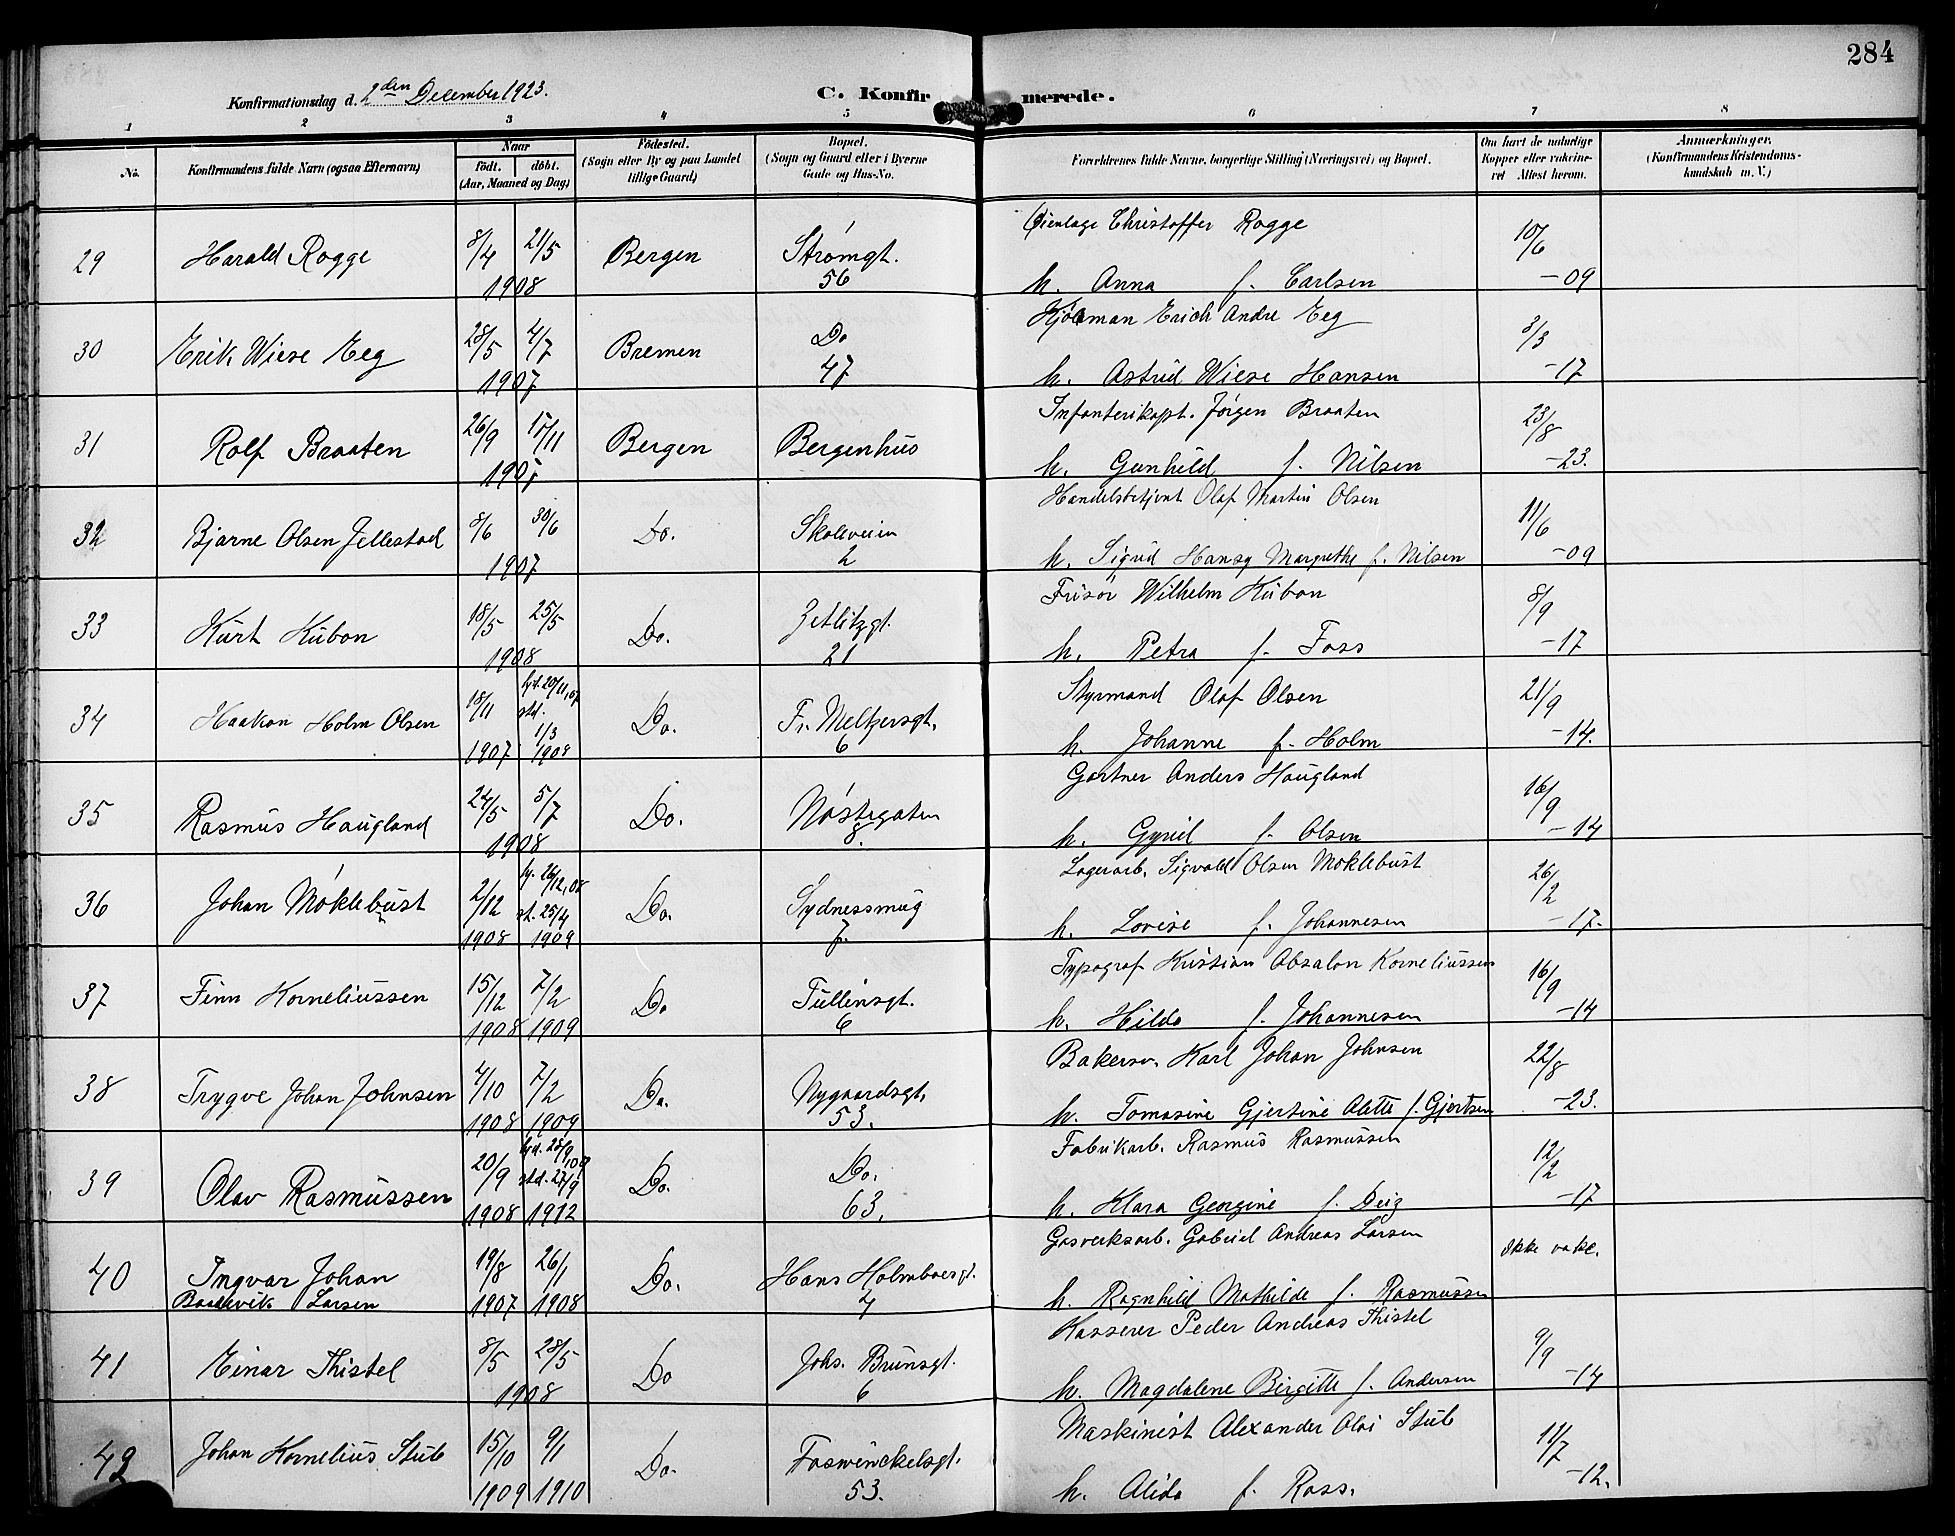 284
Konfirmationsdag d. 2den December 1923.
C. Konfirmerede.
1 2 3 4 5 6 7 8
No.
Konfirmandens fulde Navn (ogsaa Efternavn)
Naar
födt. döbt.
(Aar, Maaned og Dag)
Födested.
(Sogn eller By og paa Landet
tillige Gaard)
Bopæl.
(Sogn og Gaard eller i Byerne
Gade og Hus-No.
Forældrenes fulde Navne, borgerlige Stilling (Næringsvei) og Bopæl.
Om havt de naturlige
Kopper eller vakcine-
ret Attest herom.
Anmærkninger.
(Konfirmandens Kristendoms-
kundskab m. V.)
29 Harald Rogge 8/4 21/5 1908 Bergen Strömgt. 56
Christoffer Rogge
h. Anna f. Carlsen
10/6 -09
30 Erik Wiese Eeg 28/5 4/7 1907 Bremen Do 47
Kjöbman Erich Andre Eeg
h. Astrid Wiese Hansen
3/3 -17
31 Rolf Braaten 26/9 15/11 Bergen Bergenhus
Infanterikapt. Jörgen Braaten
h. Gunhild f. Nilsen
23/8 -23.
32 Bjarne Olsen Jellestad 8/6 30/6 1907 Do. Skoleveien 2
Handelsbetjent Olaf Martin Olsen
h. Sigrid Hansy Margrethe f. Nilsen
11/6 -09
33 Kurt Kubon 18/5 25/5 1908 Do. Zetlitzgt. 21
Frisör Wilhelm Kubon
h. Petra f. Foss
8/9 -17
34 Haakon Holm Olsen 18/11 1907 hjd. 20/11,07 std. 1/3 1908 Do. Fr. Meltzersgt. 6
Styrmand Olaf Olsen
h. Johanne f. Holm
21/9 -14.
35 Rasmus Haugland 24/5 5/7 1908 Do. Nöstegaten 8.
Gartner Anders Haugland
h. Gyrid f. Olsen
16/9 -14
36 Johan Möklebust 2/12 1908 hj. 26/12,08 st. 25/4 1909 Do. Sydnessmug 7.
Lagerarb. Sigvald Olsen Möklebust
h. Lovise f. Johannesen
26/2 -17.
37 Finn Korneliussen 15/12 1908 7/2 1909 Do Tullinsgt. 6
Typograf Kristian Absalon Korneliussen
h. Hilda f. Johannesen
16/9 -14
38 Trygve Johan Johnsen 4/10 1908 7/2 1909 Do. Nygaardsgt. 53.
Bakersv. Karl Johan Johnsen
h. Tomasine Gjertine Alette f. Gjertsen
22/8 -23.
39 Olav Rasmussen 20/9 1908 std. 27/9 1912 Do. Do. 63.
Fabrikarb. Rasmus Rasmussen
h. Klara Georgine f.
12/2 -17
40 Ingvar Johan
Larsen 19/8 1907 26/1 1908 Do. Hans Holmboesgt. 7
Gasverksarb. Gabriel Andreas Larsen
h. Ragnhild Mathilde f. Rasmussen
Ikke vakc.
41 Einar Thistel 8/5 28/5 1908 Do Johs. Brunsgt. 6
Kasserer Peder Andreas Thistel
h. Magdalene Birgitte f. Andersen
9/9 -14
42 Johan Kornelius Stub 15/10 1909 9/1 1910 Do. Foswinckelsgt. 53.
Maskinist Alexander Olai Stub
h. Alida f. Ross.
11/7 -12.